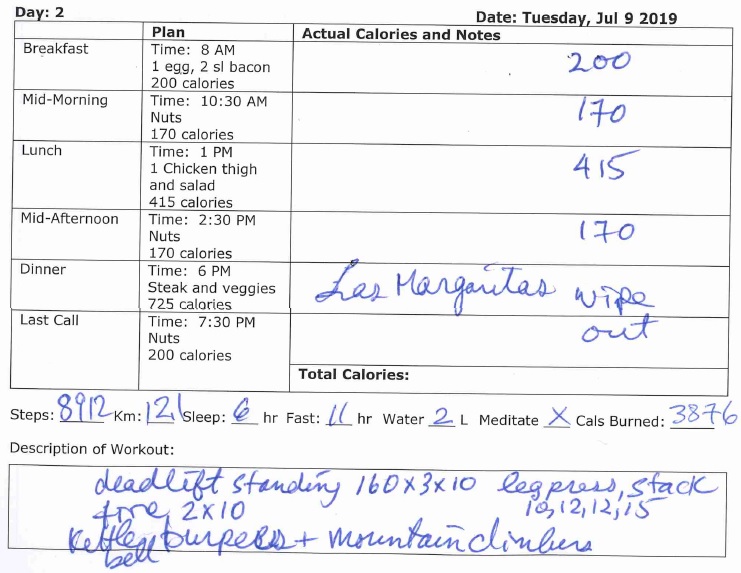 Day: 2 Date: Tuesday, Jul 9 2019
Plan Actual Calories and Notes
Breakfast Time: 8 AM 200
1 egg, 2 sl bacon
200 calories
Mid-Morning Time: 10:30 AM 170
Nuts
170 calories
Lunch Time: 1 PM 415
1 Chicken thigh
and salad
415 calories
Mid-Afternoon Time: 2:30 PM 170
Nuts
170 calories
Dinner Time: 6 PM Las Margaritas wipe
Steak and veggies
725 calories
Last Call Time: 7:30 PM out
Nuts
200 calories
Total Calories:
Steps: 8912 Km: 12.1 Sleep: 6 hr Fast: 11 hr Water 2 L Meditate X Cals Burned: 3876
Description of Workout:
deadlift standing 160x3x10 leg press, stack
2x10 10,12,12,15
Kettle burpees + mountain climbers
bell